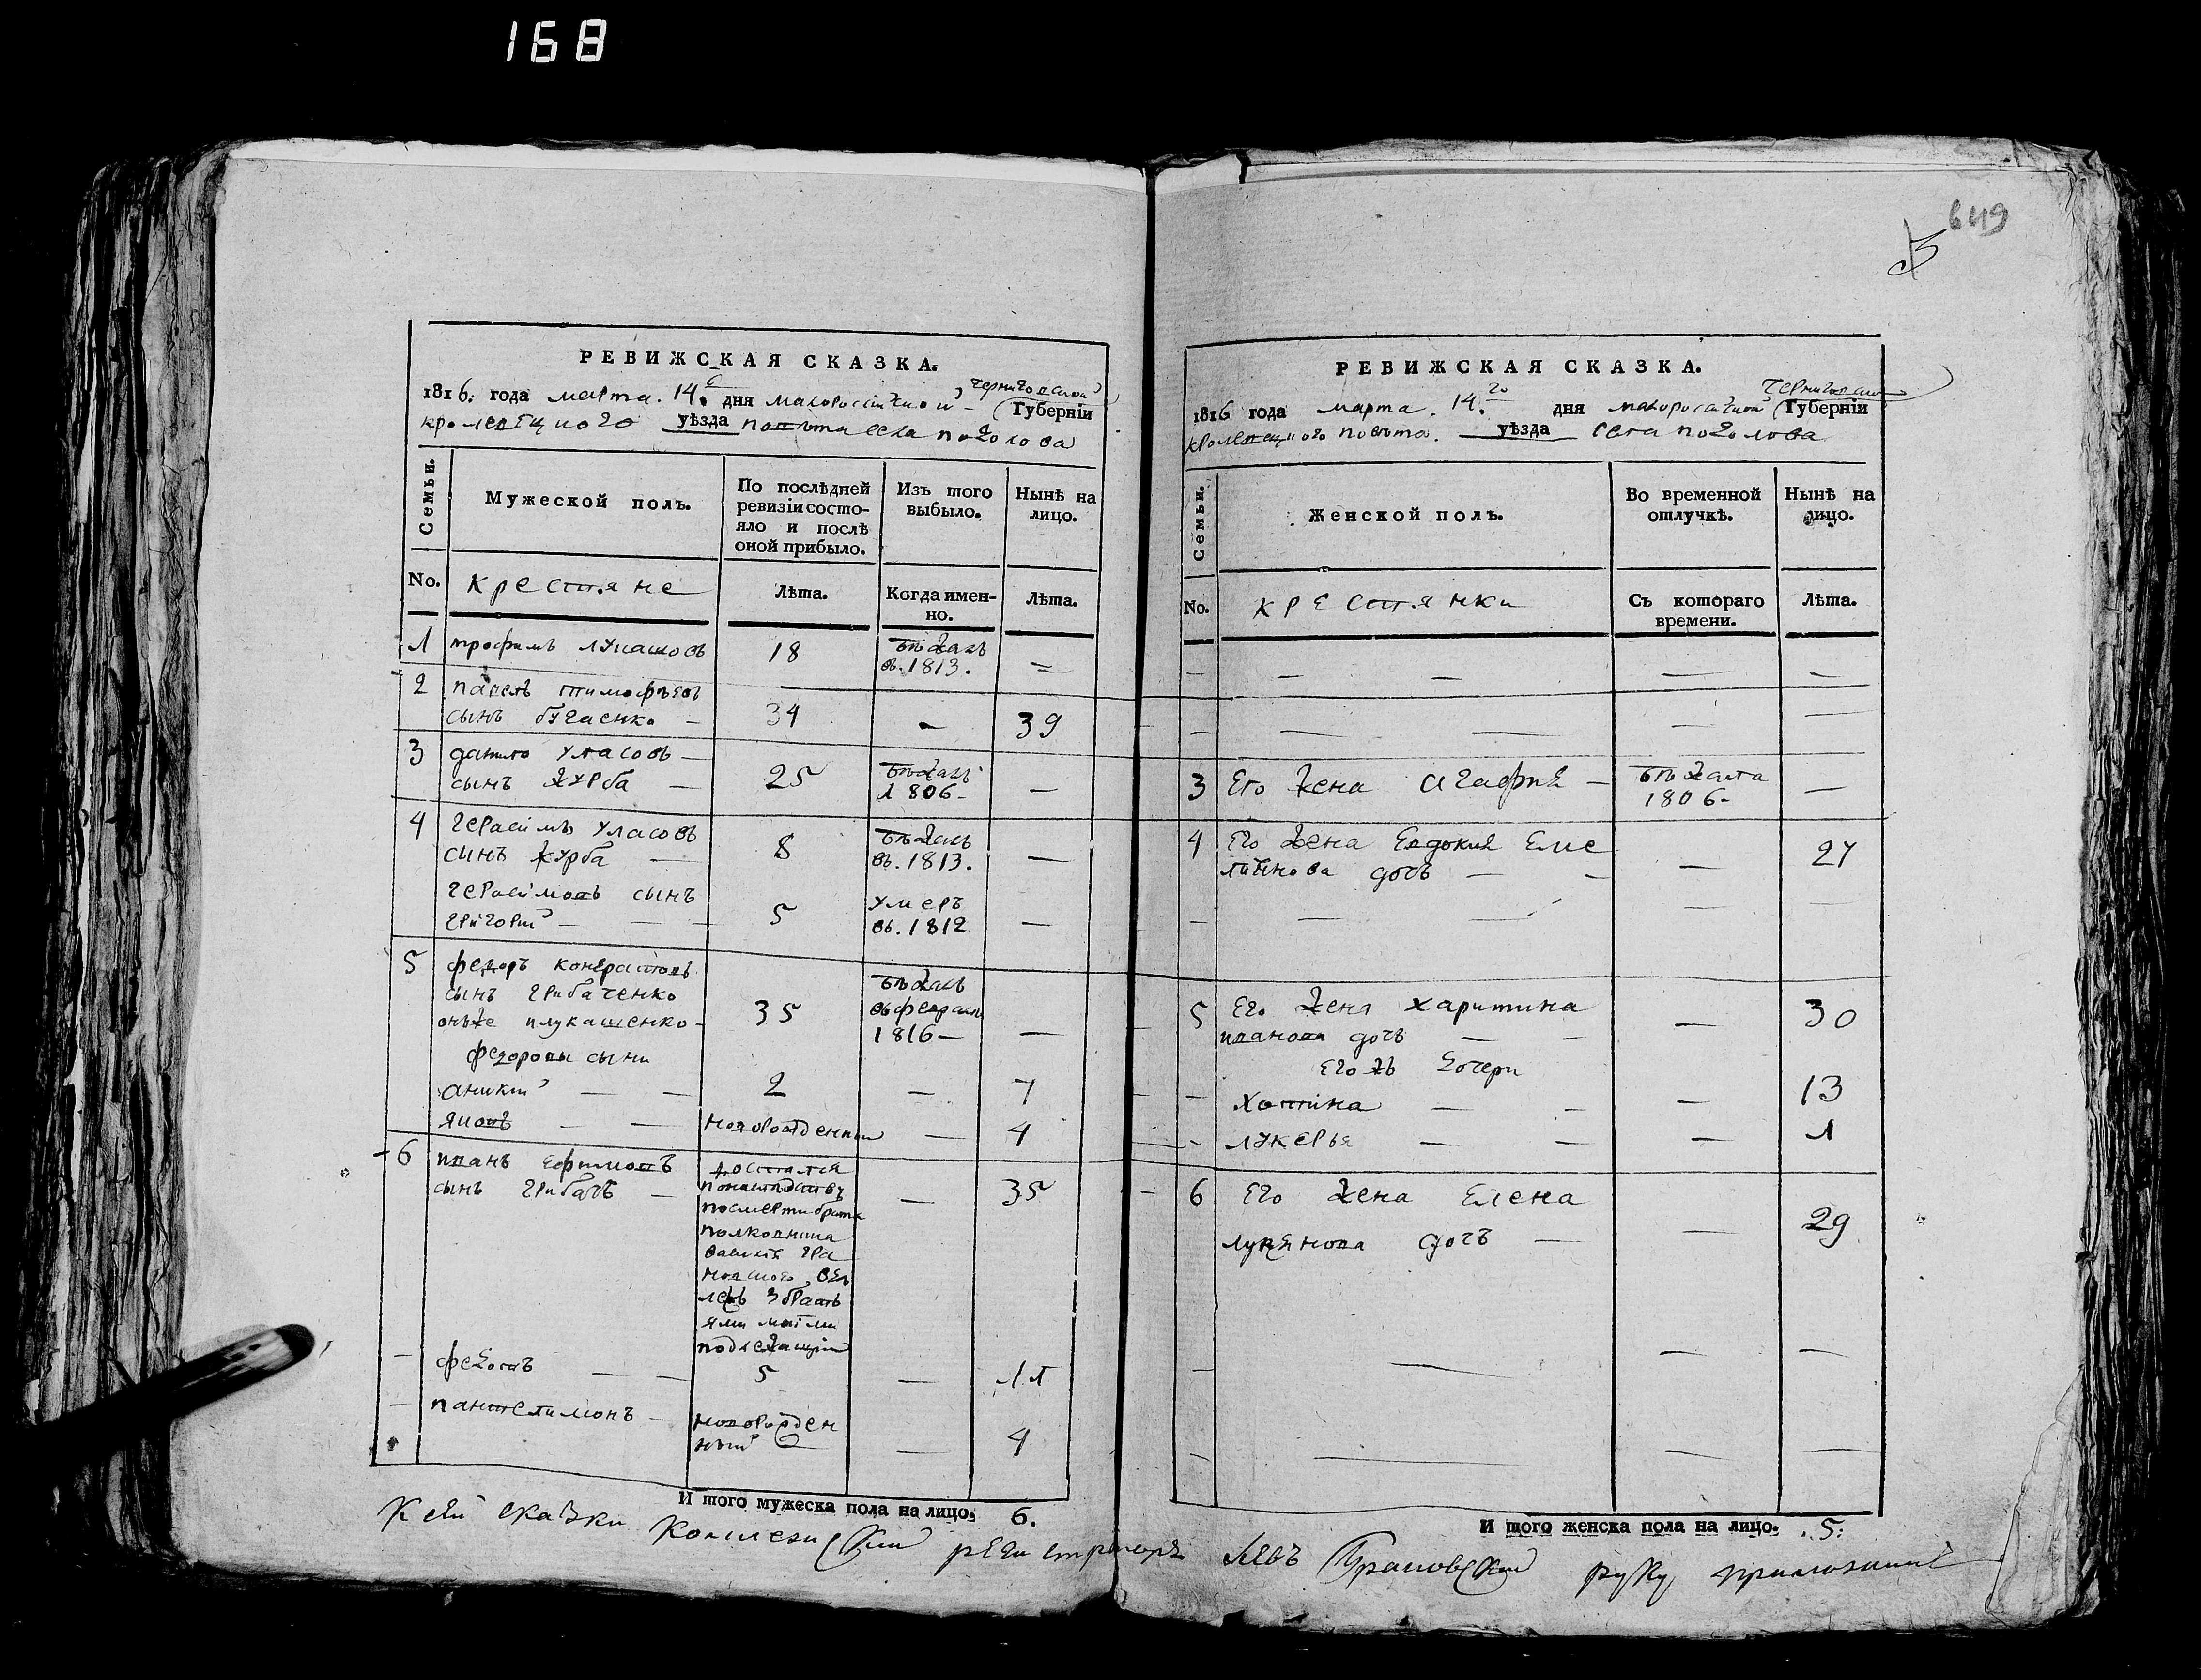 168
649
РЕВИЖСКАЯ СКАЗКА.
1816: года марта. 14. дня малоросійской Черниговской Губерніи
кролевецкого уѣзда повѣта села поholова
Семьи.
Мужеской полъ.
По послѣдней
ревизіи состо-
яло и послѣ
оной прибыло.
Изъ того
выбыло.
Нынѣ на
лицо.
No.
крестяне
Лѣта.
Когда имен-
но.
Лѣта.
1 трофимъ лукашовъ 18 бѣжалъ
въ. 1813. =
2 павелъ тимофѣевъ
сынъ бугаенко — 34 - 39
3 данило уласовъ —
сынъ журба — 25 бѣжалъ
1806 - —
4 герасимъ уласовъ
сынъ журба — 8 бѣжалъ
въ. 1813. —
герасимовъ сынъ
григорій — 5 умеръ
въ. 1812 —
5 федоръ кондратовъ
сынъ грибаченко
онъже илукашенко - 35 бѣжалъ
въ феврале
1816 — —
федоровы сыни
аникій — — 2 — 7
яковъ — — новорожденный — 4
6 иванъ ефимовъ
сынъ грибачъ — 35
достался
понаследству
посмерти брата
полковника
василія гра
новского
збрать
ями моими
подлежащій
федотъ — — 5 — 11
пантелимонъ — новорожден
ный — 4
И того мужеска пола на лицо. 6.
РЕВИЖСКАЯ СКАЗКА.
1816 года марта. 14. го дня малоросійской Черниговской Губерніи
кролевецкого повѣта. уѣзда села
Семьи.
Женской полъ.
Во временной
отлучкѣ.
Нынѣ на
лицо.
No.
крестянки
Съ котораго
времени.
Лѣта.
3 Его жена агафия — бѣжала
1806 - —
4 Его жена Евдокия Еме
линнова дочъ — — 27
5 Его жена харитина
иванова дочъ — — 30
Егожъ дочери
хотина — — 13
лукерья — — 1
6 Его жена Елена
лукянова дочъ — — 29
И того женска пола на лицо. 5:
К сей сказки Коллезский регистраторъ Левъ Грановский руку приложилъ